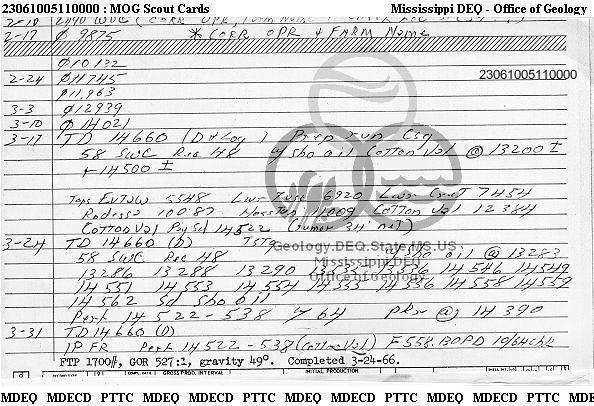 23061005110000 : MOG Scout Cards Mississippi DEQ - Office of Geology
2-17 Ø 9875 * CORR OPR & FARM Name
Ø10132
23061005110000
2-24 Ø11745
Ø11,963
3-3 Ø12939
3-10 Ø14021
3-17 TD 14660 (D & Log) Prep run Csg
58 SWC Rec 48 w/ sho oil Cotton Val @ 13200 ±
+ 14500 ±
Tops EUTAW 5548 Lwr Tusc 6920 Lwr Cret 7454
Rodessa 10087 Hosston 11009 Cotton Val 12384
Cotton Val Pay Sd 14522 (
3-24 TD 14660 (D) Tstg
Geology.DEQ.State.MS.US
58 SWC Rec 48 w/ sho oil @ 13283
Mississippi DEQ
13286 13288 13290 13535 13536 14546 14549
Office of Geology
14551 14553 14554 14555 14556 14558 14559
14562 Sd sho oil
Perf 14522-538 w/ 64 pkr @ 14390
3-31 TD 14660 (D)
IP FR Perf 14522-538 (Cotton Val) F 558 BOPD 10/64 chk
FTP 1700#, GOR 527:1, gravity 49°. Completed 3-24-66.
GROSS PROD. INTERVAL INITIAL PRODUCTION
MDEQ MDECD PTTC MDEQ MDECD PTTC MDEQ MDECD PTTC MDEQ MDECD PTTC MD